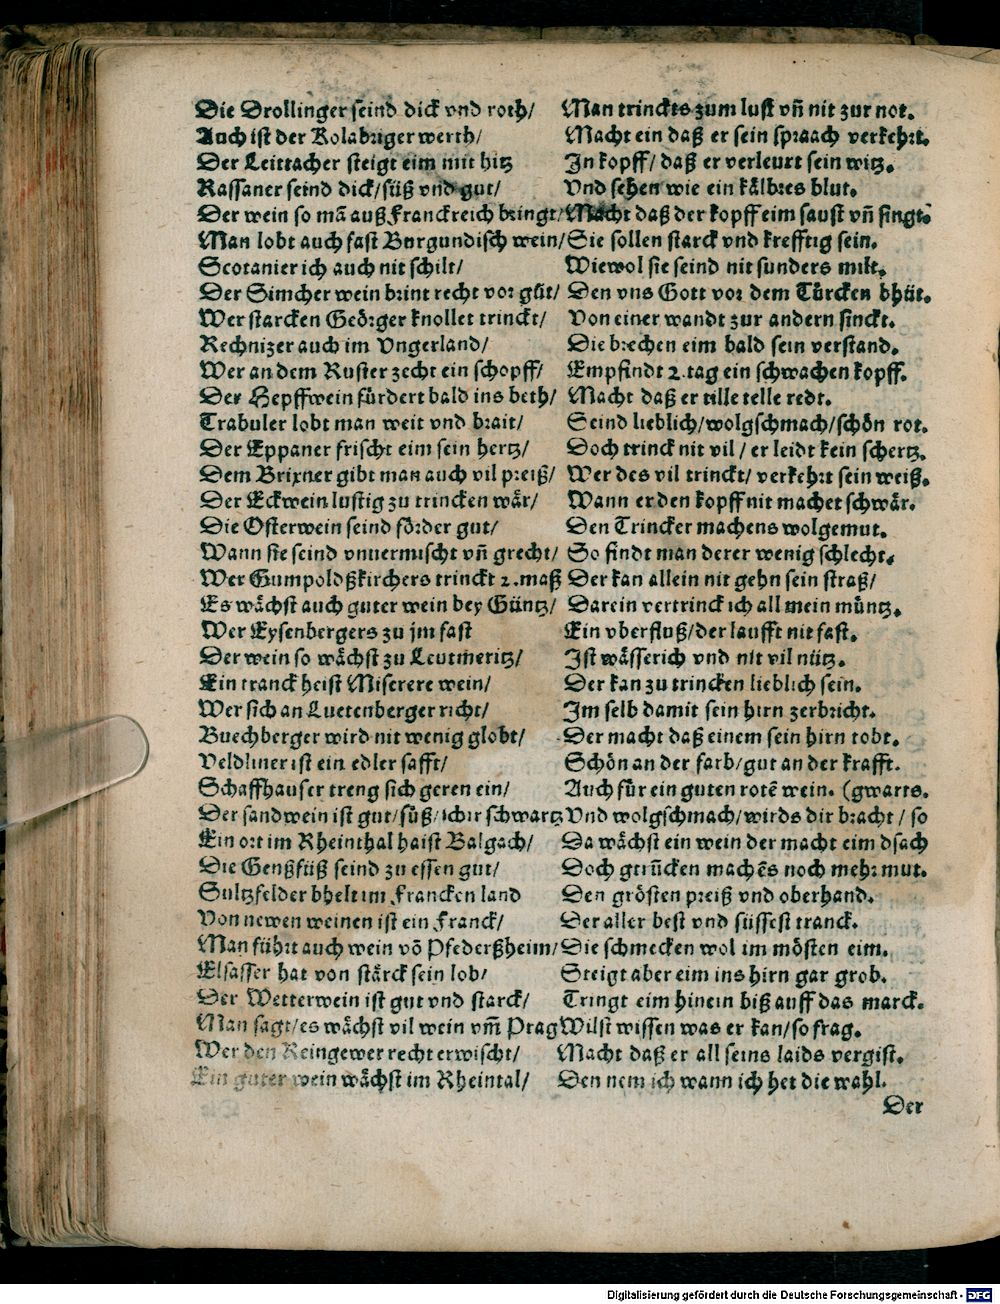 Die Drollinger seind dick vnd roth/ Man trinckts zum lust vñ nit zur not.
Auch ist der Rolabriger werth/ Macht ein daß er sein spraach verkehrt.
Der Leittacher steigt eim mit hitz In kopff/ daß er verleurt sein witz.
Rassaner seind dick/süß vnd gut/ Vnd sehen wie ein kälbres blut.
Der wein so mā auß Franckreich bringt/ Macht daß der kopff eim saust vñ singt.
Man lobt auch fast Burgundisch wein/ Sie sollen starck vnd krefftig sein.
Scotanier ich auch nit schilt/ Wiewol sie seind nit sunders milt.
Der Simcher wein brint recht vor güt/ Den vns Gott vor dem Türcken bhüt.
Wer starcken Geörger knollet trinckt/ Von einer wandt zur andern sinckt.
Rechnizer auch im Vngerland/ Die brechen eim bald sein verstand.
Wer an dem Ruster zecht ein schopff/ Empfindt 2. tag ein schwachen kopff.
Der Hepffwein fürdert bald ins beth/ Macht daß er tille telle redt.
Trabuler lobt man weit vnd brait/ Seind lieblich/wolgschmach/schön rot.
Der Eppaner frischt eim sein hertz/ Doch trinck nit vil / er leidt kein schertz.
Dem Brixner gibt man auch vil preiß/ Wer des vil trinckt/ verkehrt sein weiß.
Der Eckwein lustig zu trincken wär/ Wann er den kopff nit machet schwär.
Die Osterwein seind förder gut/ Den Trincker machens wolgemut.
Wann sie seind vnuermischt vñ grecht/ So findt man derer wenig schlecht.
Wer Gumpoldßkirchers trinckt 2. maß Der kan allein nit gehn sein straß/
Es wächst auch guter wein bey Güntz/ Darein vertrinck ich all mein müntz.
Wer Eysenbergers zu jm fast Ein vberfluß/der laufft nit fast.
Der wein so wächst zu Leutmeritz/ Ist wässerich vnd nit vil nütz.
Ein tranck heist Miserere wein/ Der kan zu trincken lieblich sein.
Wer sich an Luetenberger richt/ Im selb damit sein hirn zerbricht.
Buechberger wird nit wenig globt/ Der macht daß einem sein hirn tobt.
Veldliner ist ein edler safft/ Schön an der farb/gut an der krafft.
Schaffhauser treng sich geren ein/ Auch für ein guten rotē wein. (gwarts.
Der sandwein ist gut/süß/ schwartz Vnd wolgschmach/wirds dir bracht / so
Ein ort im Rheinthal haist Balgach/ Da wächst ein wein der macht eim dsach
Die Genßfüß seind zu essen gut/ Doch getrūcken machēs noch mehr mut.
Sultzfelder bhelt im Francken land Den grösten preiß vnd oberhand.
Von newen weinen ist ein Franck/ Der aller best vnd süssest tranck.
Man führt auch wein vō Pfederßheim/ Die schmecken wol im mösten eim.
Elsasser hat von stärck sein lob/ Steigt aber eim ins hirn gar grob.
Der Wetterwein ist gut vnd starck/ Tringt eim hinein biß auff das marck.
Man sagt/es wächst vil wein vm̄ Prag Wilst wissen was er kan/so frag.
Wer den Reingewer recht erwischt/ Macht daß er all seins laids vergist.
Ein guter wein wächst im Rheintal/ Den nem ich wann ich het die wahl.
Der
Digitalisierung gefördert durch die Deutsche Forschungsgemeinschaft - DFG